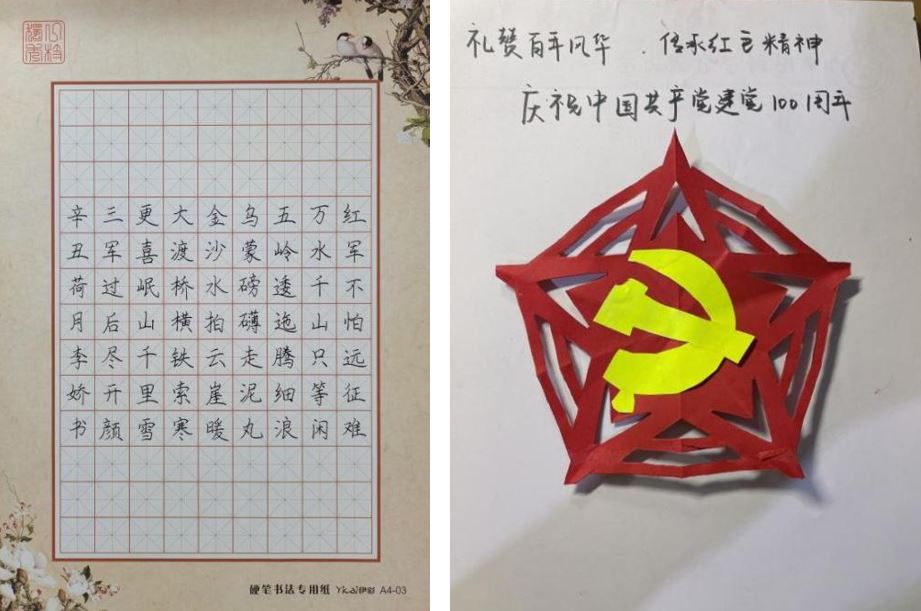 红军不怕远征难
万水千山只等闲
五岭逶迤腾细浪
乌蒙磅礴走泥丸
金沙水拍云崖暖
大渡桥横铁索寒
更喜岷山千里雪
三军过后尽开颜
辛丑荷月李娇书
硬笔书法专用纸 Yicai伊彩 A4-03
礼赞百年风华 . 传承红色精神
庆祝中国共产党建党100周年